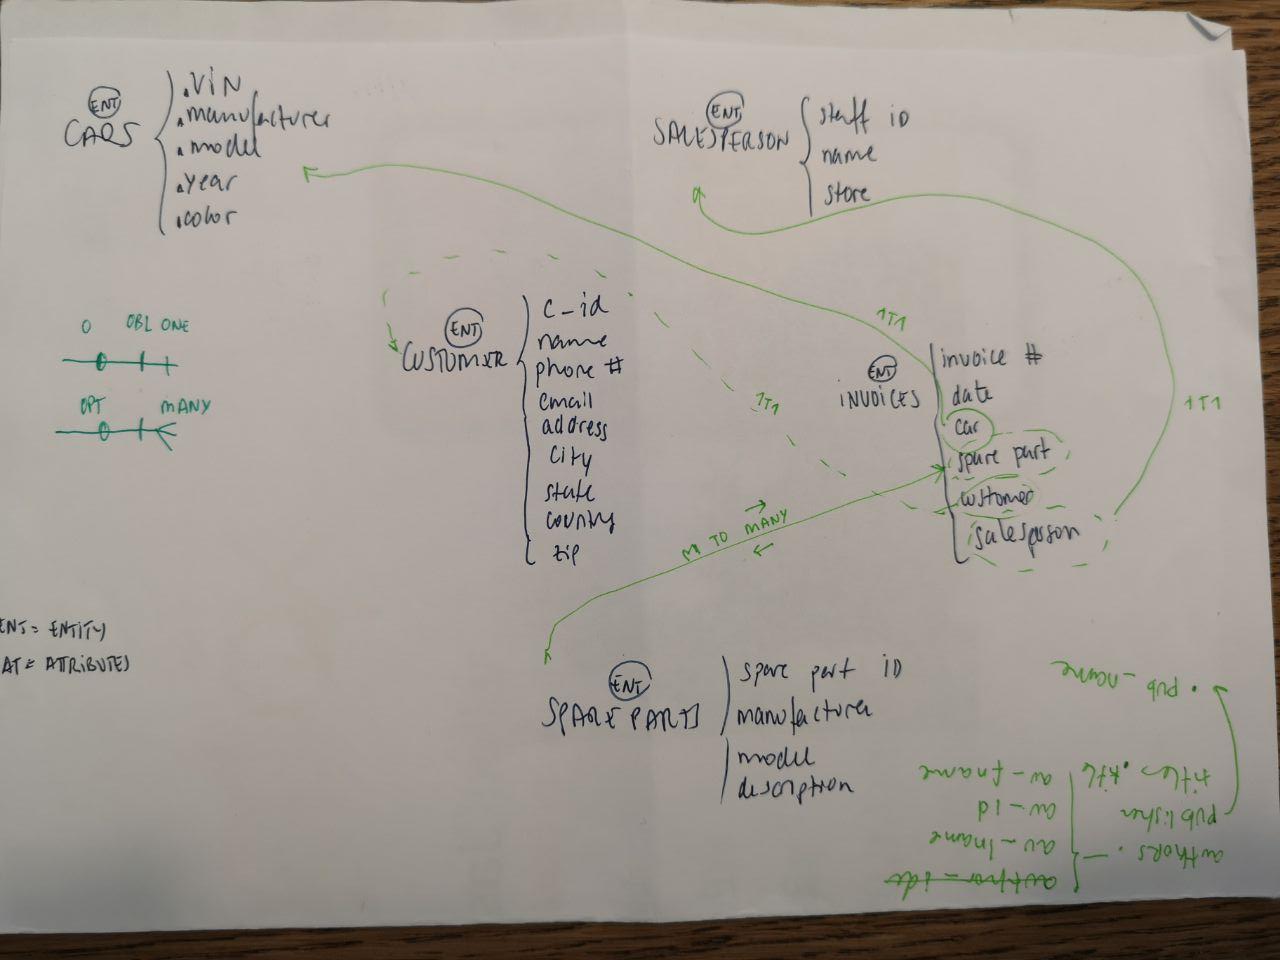 ENT
CARS
.VIN
.manufacturer
.model
.year
.color
ENT
SALESPERSON
staff ID
name
store
O OBL ONE
OPT MANY
ENT
CUSTOMER
c_id
name
phone #
email
address
city
state
country
zip
1T1
1T1
1T1
ENT
INVOICES
invoice #
date
car
spare part
customer
salesperson
M TO MANY
ENT = ENTITY
AT = ATTRIBUTES
ENT
SPARE PARTS
spare part ID
manufacturer
model
description
authors. —
publisher
titles. title
. pub_name
autho-id
au-lname
au-id
au-fname